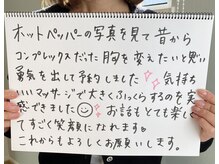 ホットペッパーの写真を見て昔から
コンプレックスだった胸を変えたいと思い
勇気を出して予約しました 気持ち
いいマッサージで大きくふっくらするのを実
感できました お話もとても楽しく
てすごく笑顔になれます
これからもよろしくお願いします。